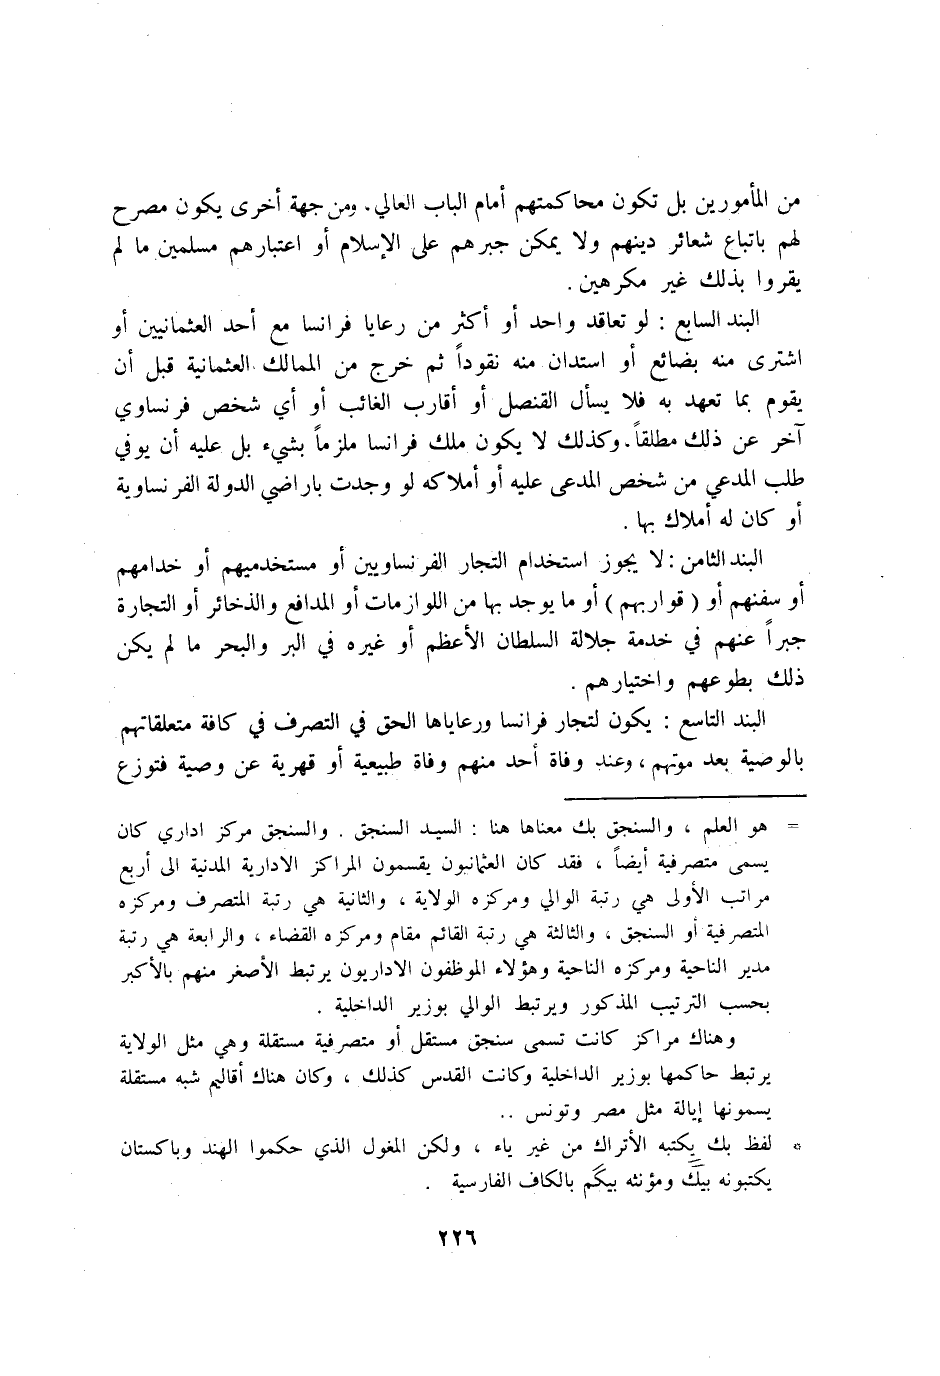 من المأمورين بل تكون محاكمتهم أمام الباب العالي. ومن جهة أخرى يكون مصرح
لهم باتباع شعائر دينهم ولا يمكن جبرهم على الإسلام أو اعتبارهم مسلمين ما لم
يقروا بذلك غير مكرهين .
البند السابع : لو تعاقد واحد أو أكثر من رعايا فرانسا مع أحد العثمانيين أو
اشترى منه بضائع أو استدان منه نقوداً ثم خرج من الممالك العثمانية قبل أن
يقوم بما تعهد به فلا يسأل القنصل أو أقارب الغائب أو أي شخص فرنساوي
آخر عن ذلك مطلقاً. وكذلك لا يكون ملك فرانسا ملزماً بشيء بل عليه أن يوفي
طلب المدعي من شخص المدعى عليه أو أملاكه لو وجدت باراضي الدولة الفرنساوية
أو كان له أملاك بها .
البند الثامن : لا يجوز استخدام التجار الفرنساويين أو مستخدميهم أو خدامهم
أو سفنهم أو ( قواربهم ) أو ما يوجد بها من اللوازمات أو المدافع والذخائر أو التجارة
جبراً عنهم في خدمة جلالة السلطان الأعظم أو غيره في البر والبحر ما لم يكن
ذلك بطوعهم واختيارهم .
البند التاسع : يكون لتجار فرانسا ورعاياها الحق في التصرف في كافة متعلقاتهم
بالوصية بعد موتهم ، وعند وفاة أحد منهم وفاة طبيعية أو قهرية عن وصية فتوزع
= هو العلم ، والسنجق بك معناها هنا : السيد السنجق . والسنجق مركز اداري كان
يسمى متصرفية أيضاً ، فقد كان العثمانيون يقسمون المراكز الادارية المدنية الى أربع
مراتب الأولى هي رتبة الوالي ومركزه الولاية ، والثانية هي رتبة المتصرف ومركزه
المتصرفية أو السنجق ، والثالثة هي رتبة القائم مقام ومركزه القضاء ، والرابعة هي رتبة
مدير الناحية ومركزه الناحية وهؤلاء الموظفون الاداريون يرتبط الأصغر منهم بالأكبر
بحسب الترتيب المذكور ويرتبط الوالي بوزير الداخلية .
وهناك مراكز كانت تسمى سنجق مستقل أو متصرفية مستقلة وهي مثل الولاية
يرتبط حاكمها بوزير الداخلية وكانت القدس كذلك ، وكان هناك أقاليم شبه مستقلة
يسمونها إيالة مثل مصر وتونس ..
* لفظ بك يكتبه الأتراك من غير ياء ، ولكن المغول الذي حكموا الهند وباكستان
يكتبونه بيگ ومؤنثه بيگم بالكاف الفارسية .
٢٢٦